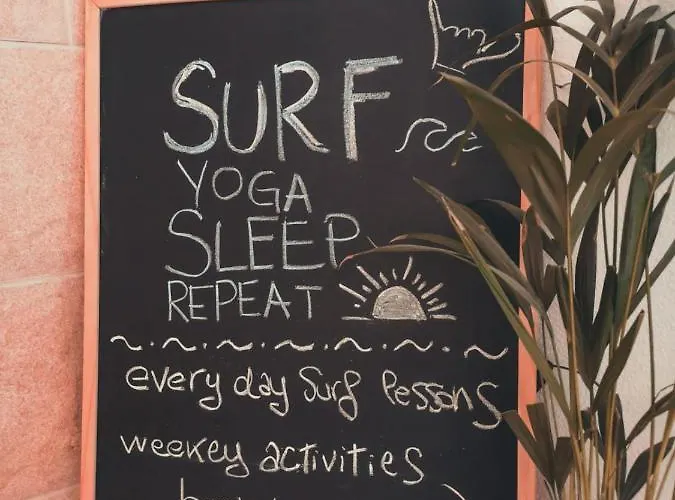 SURF
YOGA
SLEEP
REPEAT
every day surf lessons
weekey activities